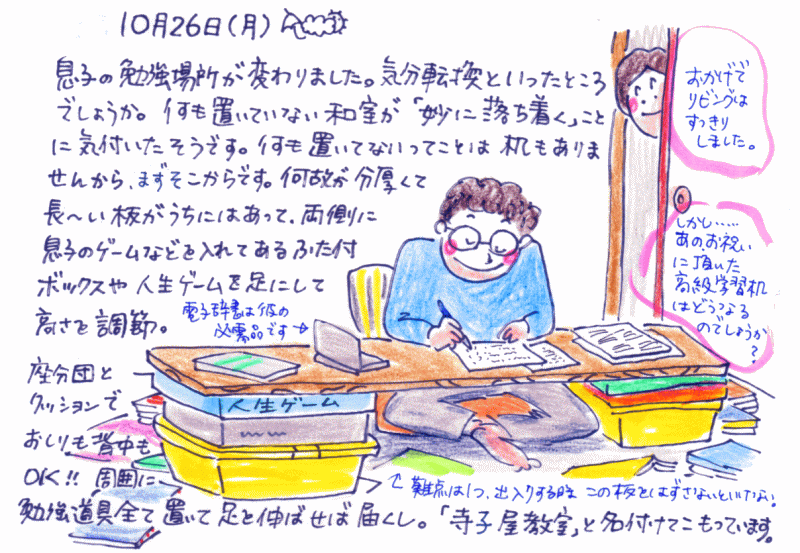 10月26日(月)
息子の勉強場所が変わりました。気分転換といったところ
でしょうか。何も置いていない和室が「妙に落ち着く」こと
に気付いたそうです。何も置いてないってことは机もありま
せんから、まずそこからです。何故か分厚くて
長〜い板がうちにはあって、両側に
息子のゲームなどを入れてあるふた付
ボックスや人生ゲームを足にして
高さを調節。
電子辞書は彼の
必需品です→
座分団と
クッションで
おしりも背中も
OK!! 周囲に
勉強道具全て置いて足を伸ばせば届くし。「寺子屋教室」と名付けてこもっています。
人生ゲーム
難点は1つ、出入りする時この板をはずさないといけない。
おかげで
リビングは
すっきり
しました。
しかし……
あの、お祝い
に頂いた
高級学習机
はどうなる
のでしょうか
?